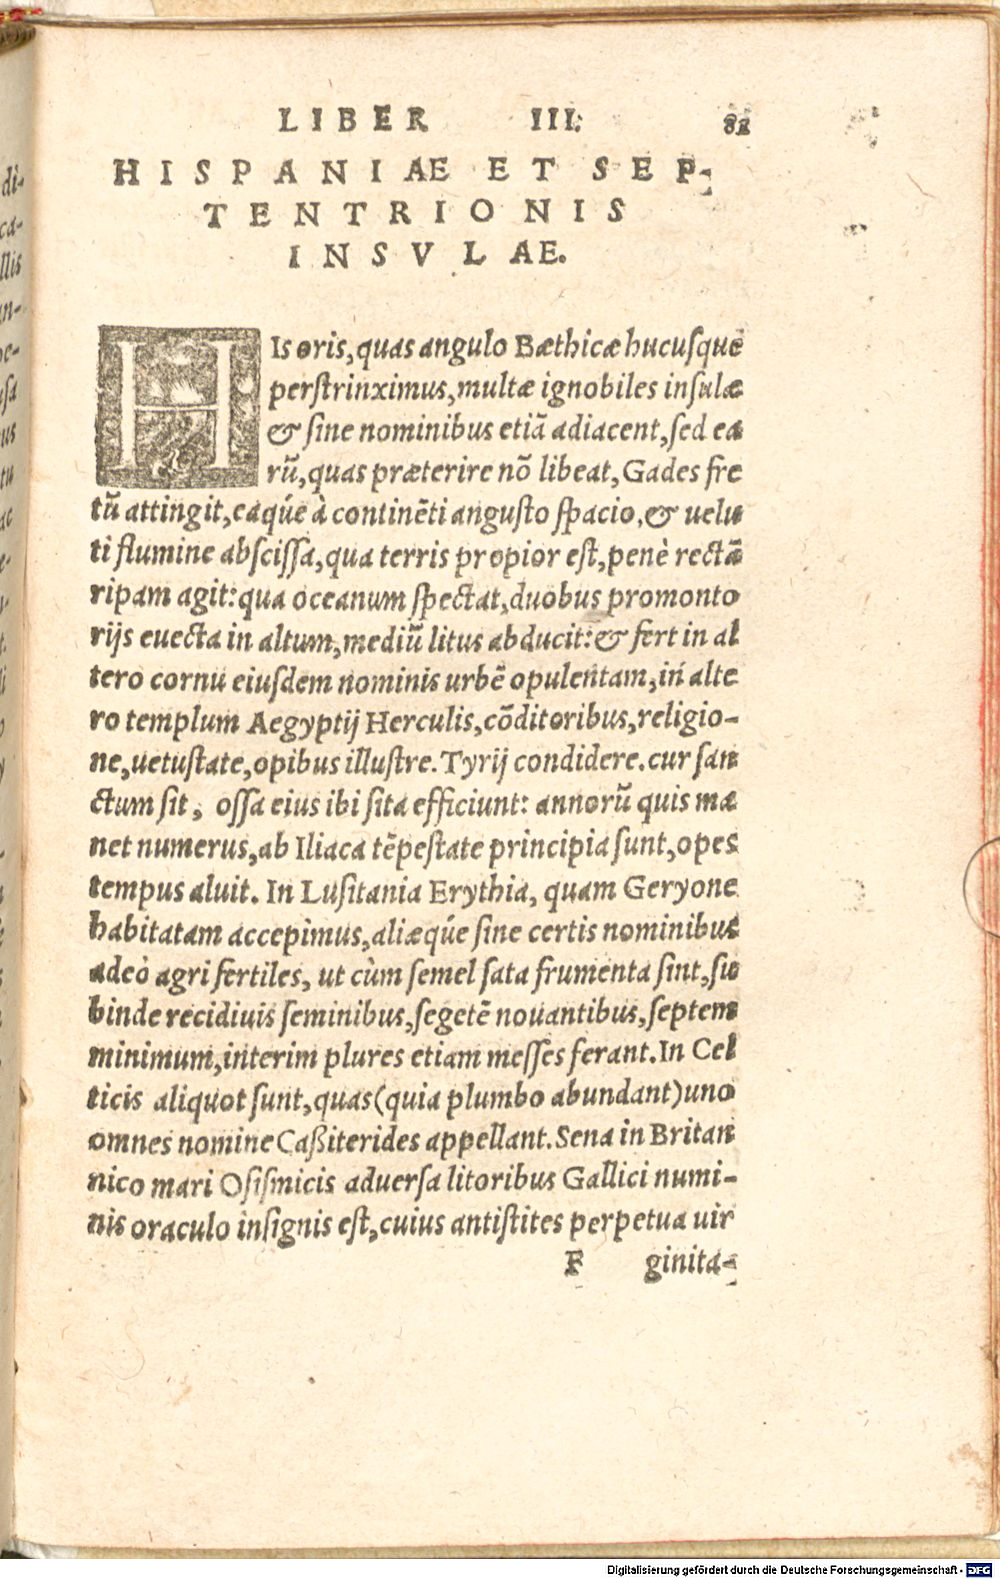 LIBER III. 81
HISPANIÆ ET SEP-
TENTRIONIS
INSVLÆ.
HIs oris, quas angulo Bæthicæ hucusque
perstrinximus, multæ ignobiles insulæ
& sine nominibus etiã adiacent, sed ea
rũ, quas præterire nõ libeat, Gades fre
tũ attingit, eaq́ue à continẽti angusto spacio, & uelu
ti flumine abscissa, qua terris propior est, penè rectã
ripam agit: qua oceanum spectat, duobus promonto
rijs euecta in altum, mediũ litus abducit: & fert in al
tero cornu eiusdem nominis urbẽ opulentam, in alte
ro templum Aegyptij Herculis, cõditoribus, religio-
ne, uetustate, opibus illustre. Tyrij condidere. cur san
ctum sit, ossa eius ibi sita efficiunt: annorũ quis mæ
net numerus, ab Iliaca tẽpestate principia sunt, opes
tempus aluit. In Lusitania Erythia, quam Geryone
habitatam accepimus, aliæq́ue sine certis nominibus
adeò agri fertiles, ut cùm semel sata frumenta sint, su
binde recidiuis seminibus, segetẽ nouantibus, septem
minimum, interim plures etiam messes ferant. In Cel
ticis aliquot sunt, quas (quia plumbo abundant) uno
omnes nomine Caßiterides appellant. Sena in Britan
nico mari Osismicis aduersa litoribus Gallici numi-
nis oraculo insignis est, cuius antistites perpetua uir
F ginita-
Digitalisierung gefördert durch die Deutsche Forschungsgemeinschaft - DFG